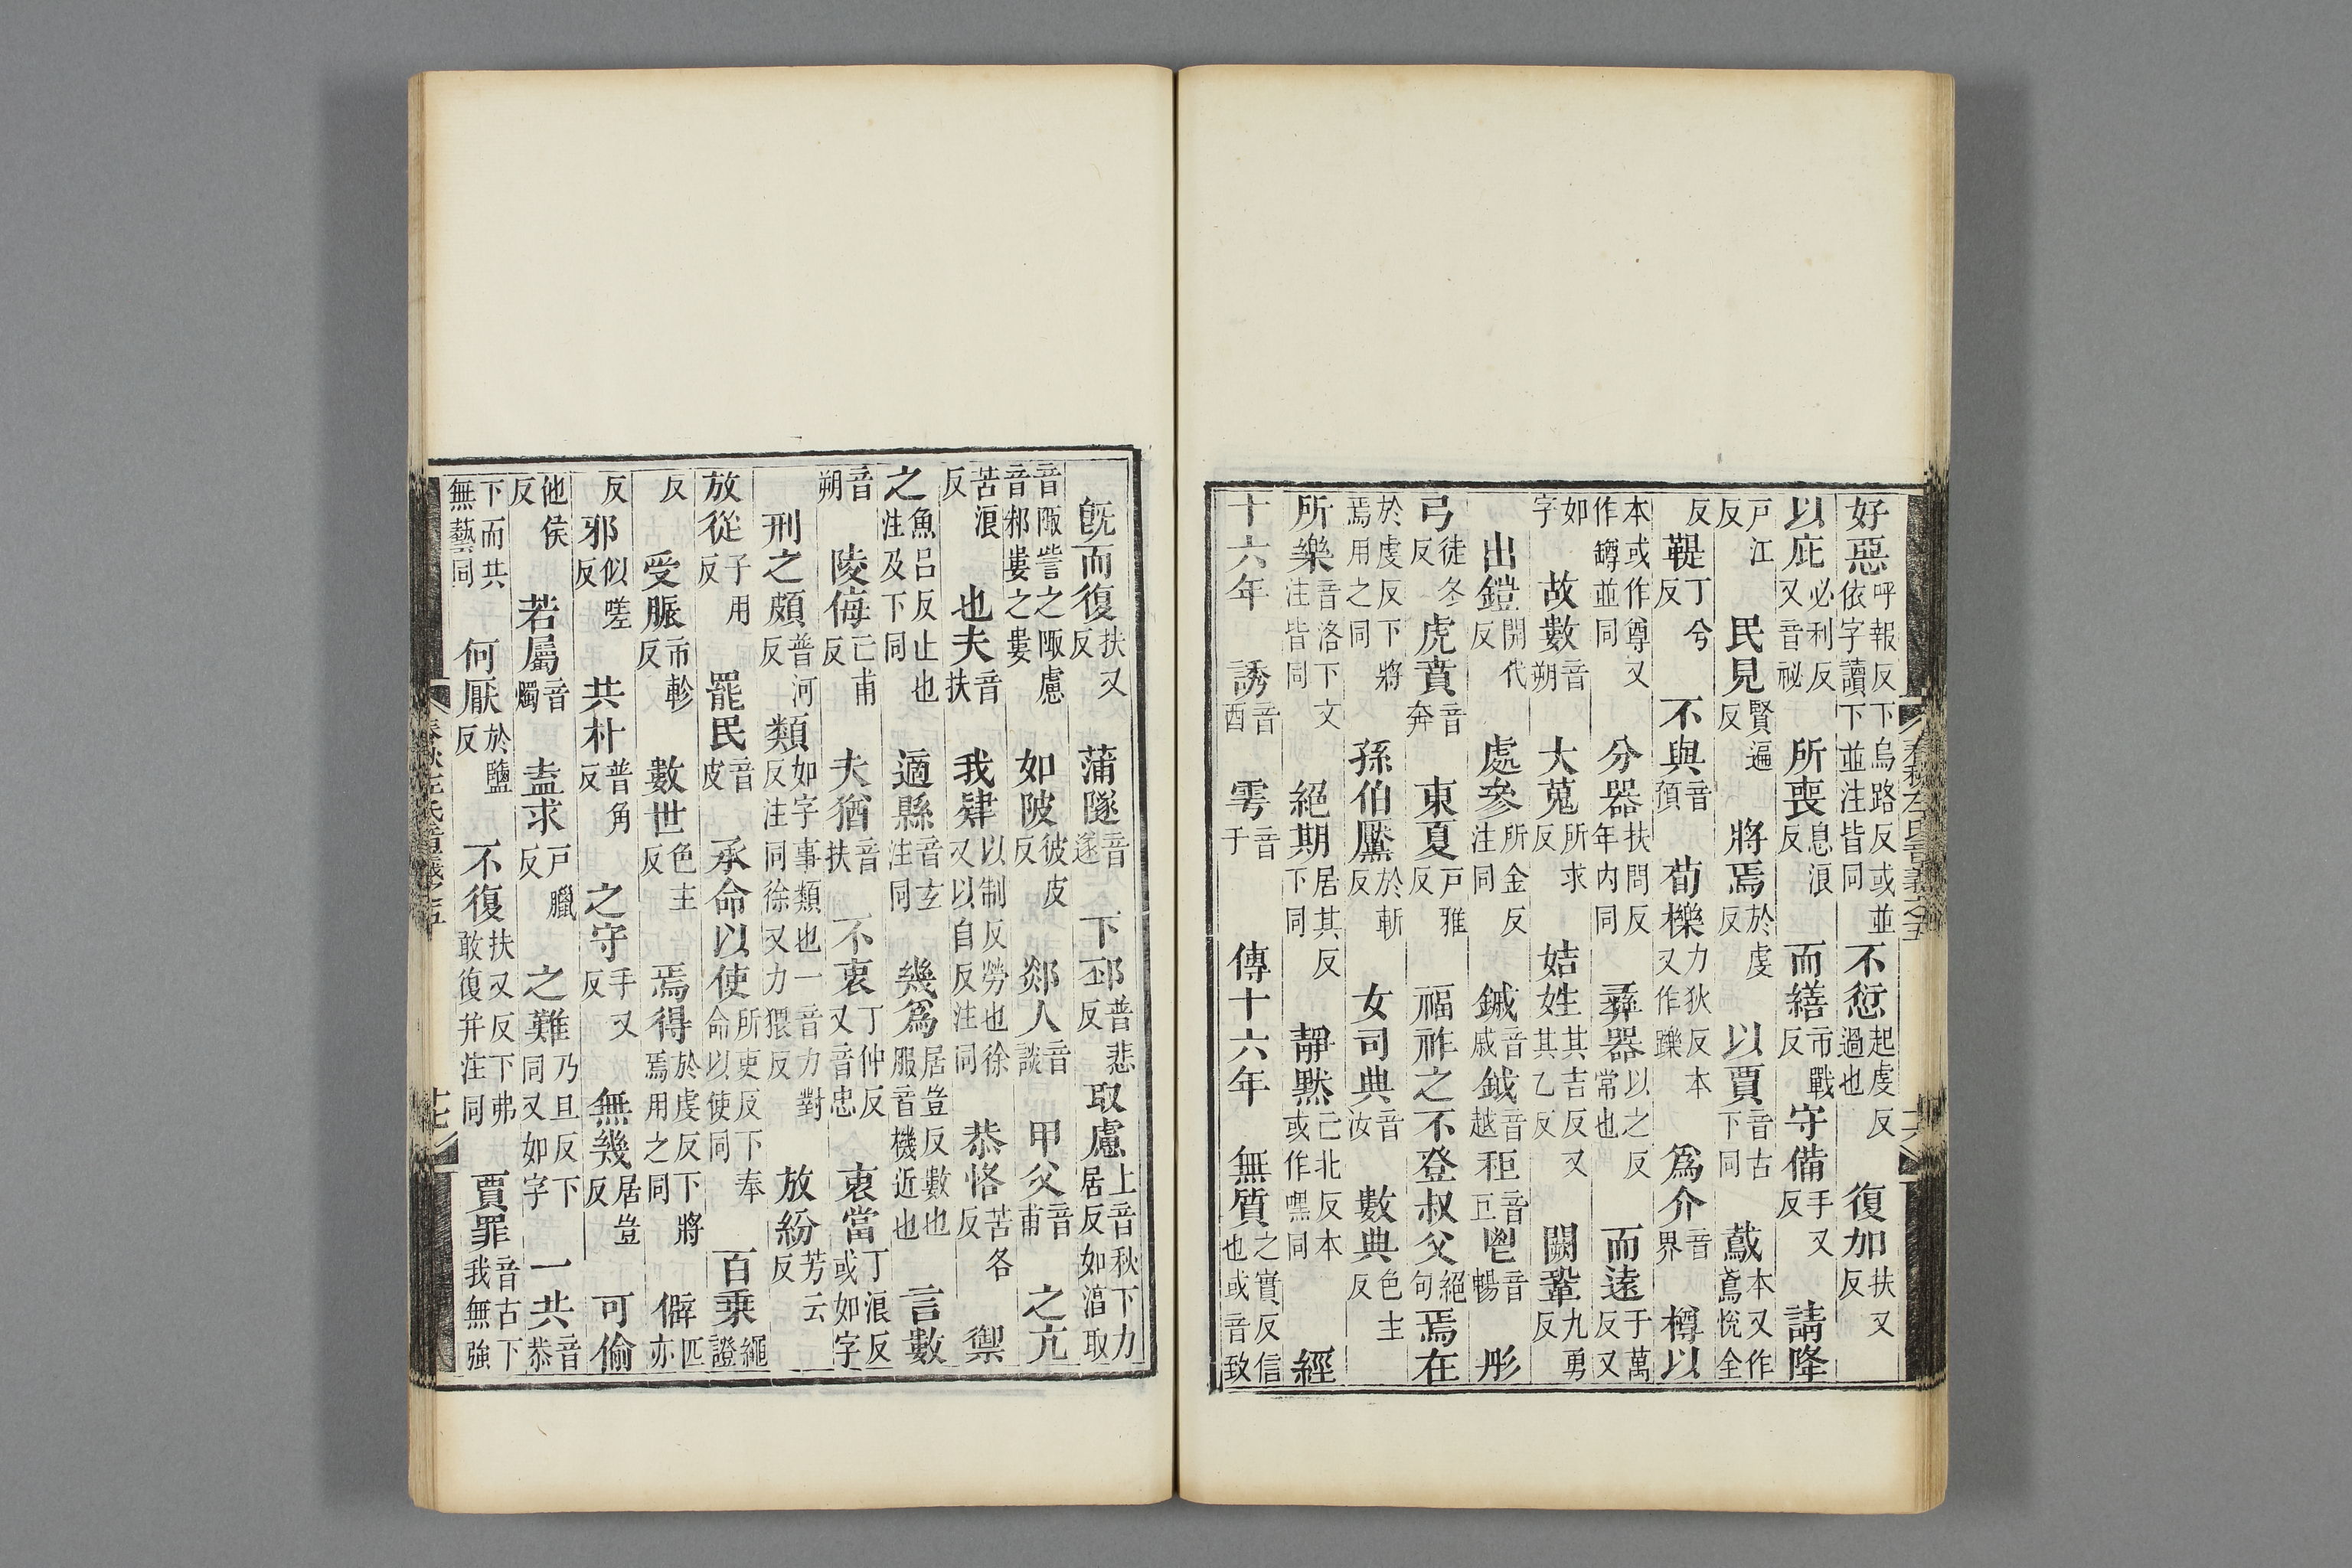 好惡呼報反下烏路反或並依字讀下並注皆同 不愆起虔反過也 復加扶又反
以庇必利反又音祕 所喪息浪反 而繕市戰反 守備手又反 請降
戶江反 民見賢遍反 將焉於虔反 以賈音古下同 蒍本又作鳶悅全
反 鞮丁兮反 不與音預 荀櫟力狄反本又作躒 爲介音界 樽以
本或作尊又作罇並同 分器扶問反年内同 彞器以之反常也 而遠于萬反又
如字 故數音朔 大蒐所求反 姞姓其吉反又其乙反 闕鞏九勇反
出鎧開代反 處參所金反注同 鏚音戚 鉞音越 秬音巨 鬯音暢 彤
弓徒冬反 虎賁音奔 東夏戶雅反 福祚之不登叔父絕句 焉在
於虔反下將焉用之同 孫伯黶於斬反 女司典音汝 數典色主反
所樂音洛下文注皆同 絕期居其反下同 靜默亡北反本或作嘿同 經
十六年 誘音酉 雩音于 傳十六年 無質之實反信也或音致
旣而復扶又反 蒲隧音遂 下邳普悲反 取慮上音秋下力居反如淳取
音陬訾之陬慮音郲婁之婁 如陂彼皮反 郯人音談 甲父音甫 之亢
苦浪反 也夫音扶 我肄以制反勞也徐又以自反注同 恭恪苦各反 禦
之魚呂反止也注及下同 適縣音玄注同 幾爲居豈反數也服音機近也 言數
音朔 陵侮亡甫反 夫猶音扶 不衷丁仲反又音忠 衷當丁浪反或如字
刑之頗普河反 類如字事類也一音力對反注同徐又力猥反 放紛芳云反
放從子用反 罷民音皮 承命以使所吏反下奉命以使同 百乘繩證
反 受脤市軫反 數世色主反 焉得於虔反下將焉用之同 僻匹亦
反 邪似嗟反 共朴普角反 之守手又反 無幾居豈反 可偷
他侯反 若屬音燭 盍求戶臘反 之難乃旦反下同又如字 一共音恭
下而共無藝同 何厭於鹽反 不復扶又反下弗敢復并注同 賈罪音古下我無強
春秋左氏音義之五